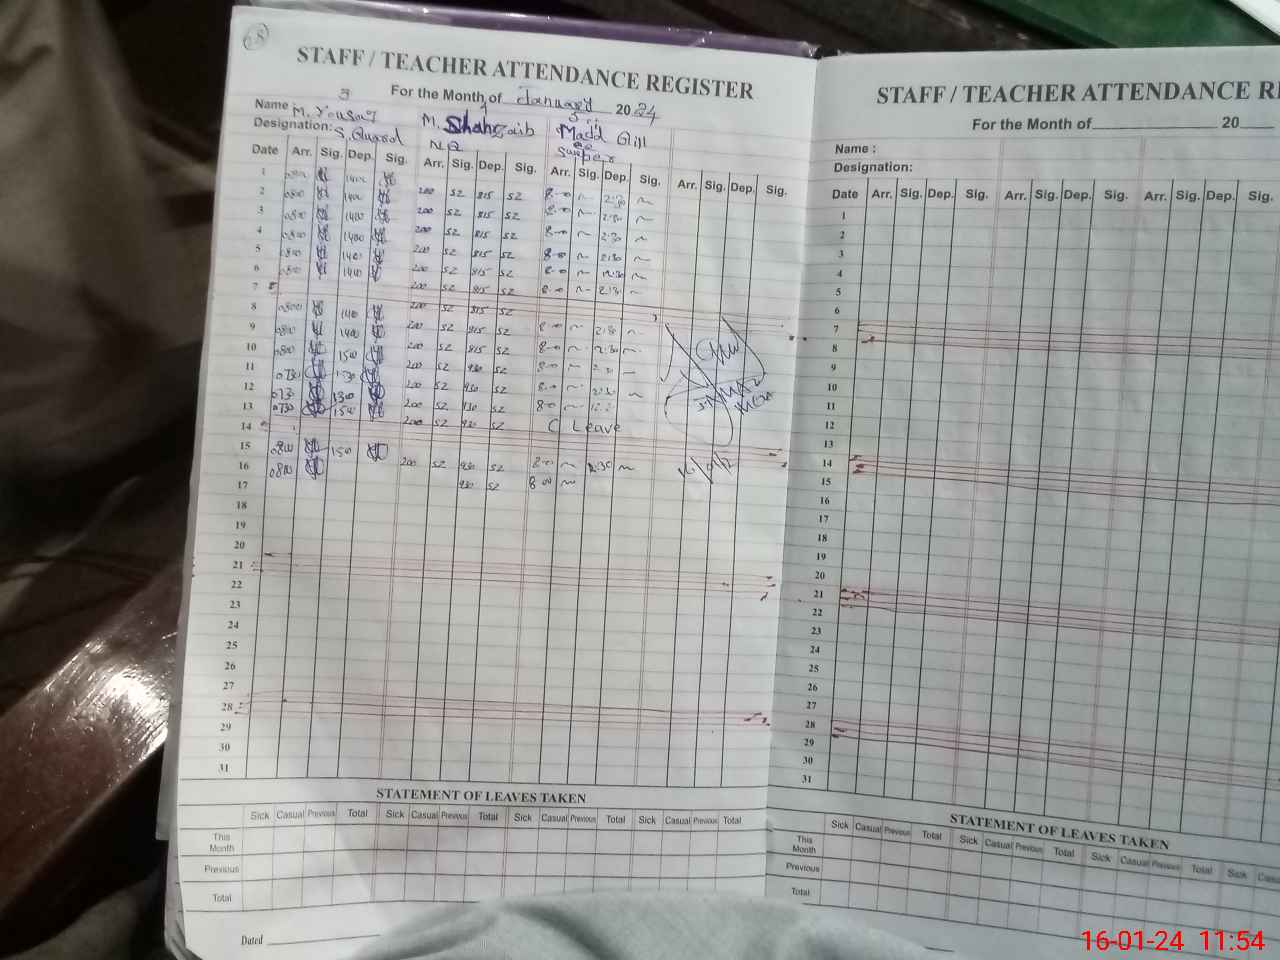 68
STAFF / TEACHER ATTENDANCE REGISTER
For the Month of January 2024
3 4 5
Name M. Yousaf M. Shahzaib Majid Gill
Designation: S. Guard NQ Sweeper
Date Arr. Sig. Dep. Sig. Arr. Sig. Dep. Sig. Arr. Sig. Dep. Sig. Arr. Sig. Dep. Sig.
1 1400
2 0800 1400 200 SZ 815 SZ 8-00 2:30
3 0800 1400 200 SZ 815 SZ 8-00 2:30
4 0800 1400 200 SZ 815 SZ 8-00 2:30
5 0800 1400 200 SZ 815 SZ 8-00 2:30
6 0800 1400 200 SZ 815 SZ 8-00
7 200 SZ 815 SZ 8-00 2:30
8 0800 1400 200 SZ 815 SZ
9 0800 1400 200 SZ 815 SZ 8-00 2:30
10 0800 1500 200 SZ 815 SZ 8-00 2:30
11 0730 1500 200 SZ 930 SZ 8-00 2:30
12 0730 1300 200 SZ 930 SZ 8-00 2:30
13 0730 1500 200 SZ 930 SZ 8-00
14 200 SZ 930 SZ C Leave
15 0800 1500
16 0800 200 SZ 930 SZ 8-00 2:30
17 930 SZ 8-00
18
19
20
21
22
23
24
25
26
27
28
29
30
31
STATEMENT OF LEAVES TAKEN
Sick Casual Previous Total Sick Casual Previous Total Sick Casual Previous Total Sick Casual Previous Total
This Month
Previous
Total
Dated
STAFF / TEACHER ATTENDANCE RE
For the Month of 20
Name :
Designation:
Date Arr. Sig. Dep. Sig. Arr. Sig. Dep. Sig. Arr. Sig. Dep. Sig.
1
2
3
4
5
6
7
8
9
10
11
12
13
14
15
16
17
18
19
20
21
22
23
24
25
26
27
28
29
30
31
STATEMENT OF LEAVES TAKEN
Sick Casual Previous Total Sick Casual Previous Total Sick Casual Previous Total Sick Casua
This Month
Previous
Total
16-01-24 11:54